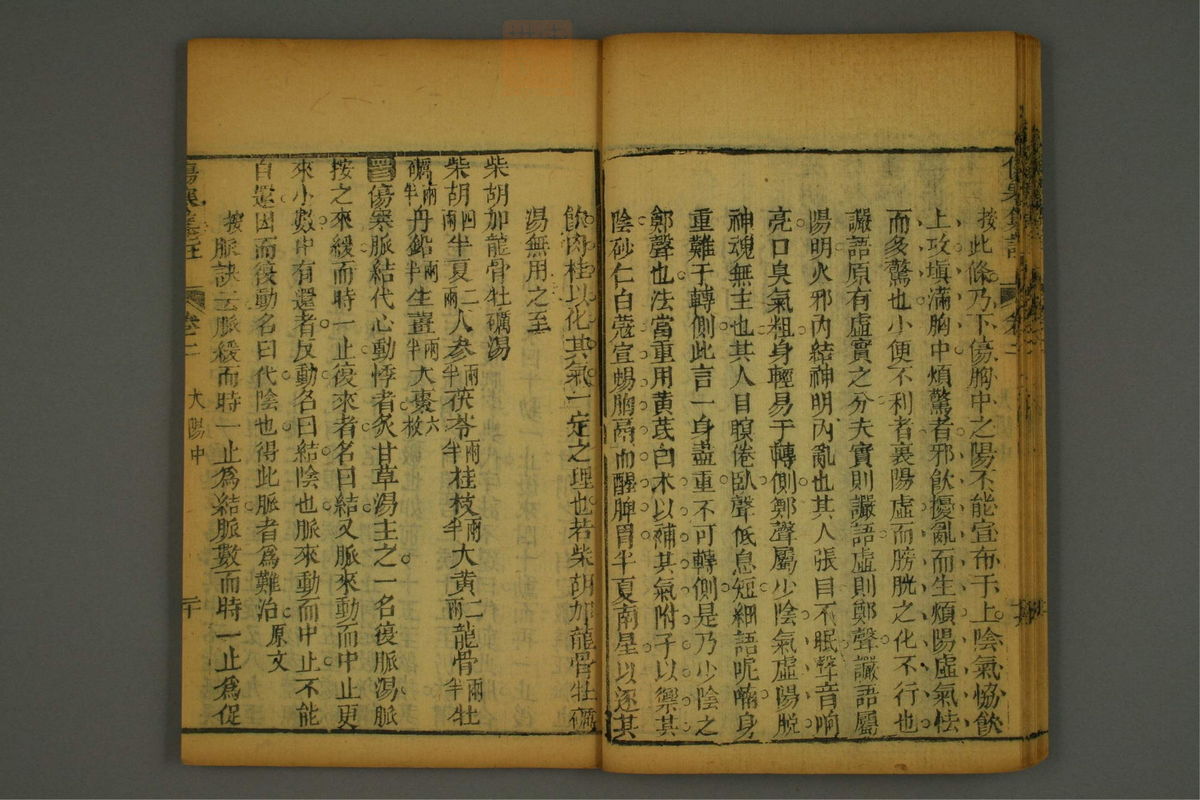 傷寒集註
卷二
按此條乃下傷胸中之陽不能宣布于上陰氣協飲
上攻塡滿胸中煩驚者邪飮擾亂而生煩陽虛氣怯
而多驚也小便不利者裏陽虛而膀胱之化不行也
讝語原有虛實之分夫實則讝語虛則鄭聲讝語屬
陽明火邪內結神明內亂也其人張目不眠聲音响
亮口臭氣粗身輕易于轉側鄭聲屬少陰氣虛陽脫
神魂無主也其人目瞑倦臥聲低息短細語呢喃身
重難于轉側此言一身盡重不可轉側是乃少陰之
鄭聲也法當重用黃茋白朮以補其氣附子以禦其
陰砂仁白蔻宣暢胸鬲而醒脾胃半夏南星以逐其
飮肉桂以化其氣一定之理也若柴胡加龍骨牡礪
湯無用之至
柴胡加龍骨牡礪湯
柴胡四兩半夏二兩人參兩半茯苓兩半桂枝兩半大黃二兩龍骨兩半牡
礪兩半丹鉛兩半生薑兩半大棗六枚
傷寒脈結代心動悸者炙甘草湯主之一名復脈湯脈
按之來緩而時一止復來者名曰結又脈來動而中止更
來小數中有還者反動名曰結陰也脈來動而中止不能
自還因而復動名曰代陰也得此脈者爲難治原文
按脈訣云脈緩而時一止爲結脈數而時一止爲促
傷寒集註
卷二
太陽中
二十